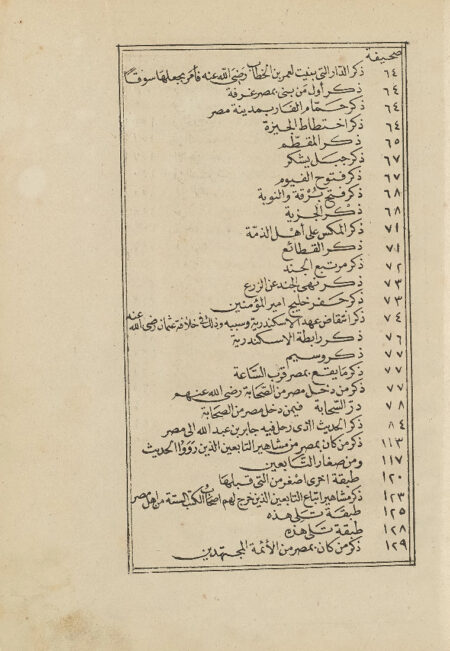 صحيفة
٦٤ ذكر الدار التى بنيت لعمر بن الخطاب رضى الله عنه فأمر بجعلها سوقا
٦٤ ذكر أول من بنى بمصر غرفة
٦٤ ذكر حمام الفار بمدينة مصر
٦٤ ذكر اختطاط الجيزة
٦٥ ذكر المقطم
٦٧ ذكر جبل يشكر
٦٧ ذكر فتوح الفيوم
٦٨ ذكر فتح برقة والنوبة
٦٨ ذكر الجزية
٧١ ذكر المكس على أهل الذمة
٧١ ذكر القطائع
٧٢ ذكر مرتبع الجند
٧٣ ذكر نهى الجند عن الزرع
٧٣ ذكر حفر خليج امير المؤمنين
٧٤ ذكر انتقاض عهد الاسكندرية وسببه وذلك فى خلافة عثمان رضى الله عنه
٧٦ ذكر رابطة الاسكندرية
٧٧ ذكر وسيم
٧٧ ذكر ما يقع بمصر قرب الساعة
٧٧ ذكر من دخل مصر من الصحابة رضى الله عنهم
٧٨ در السحابة فيمن دخل مصر من الصحابة
٨٤ ذكر الحديث الذى رحل فيه جابر بن عبد الله الى مصر
١١٣ ذكر من كان بمصر من مشاهير التابعين الذين رووا الحديث
١١٧ ومن صغار التابعين
١٢٠ طبقة اخرى اصغر من التى قبلها
١٢٣ ذكر مشاهير اتباع التابعين الذين خرج لهم اصحاب الكتب الستة من اهل مصر
١٢٥ طبقة تلى هذه
١٢٨ طبقة تلى هذه
١٢٩ ذكر من كان بمصر من الأئمة المجتهدين